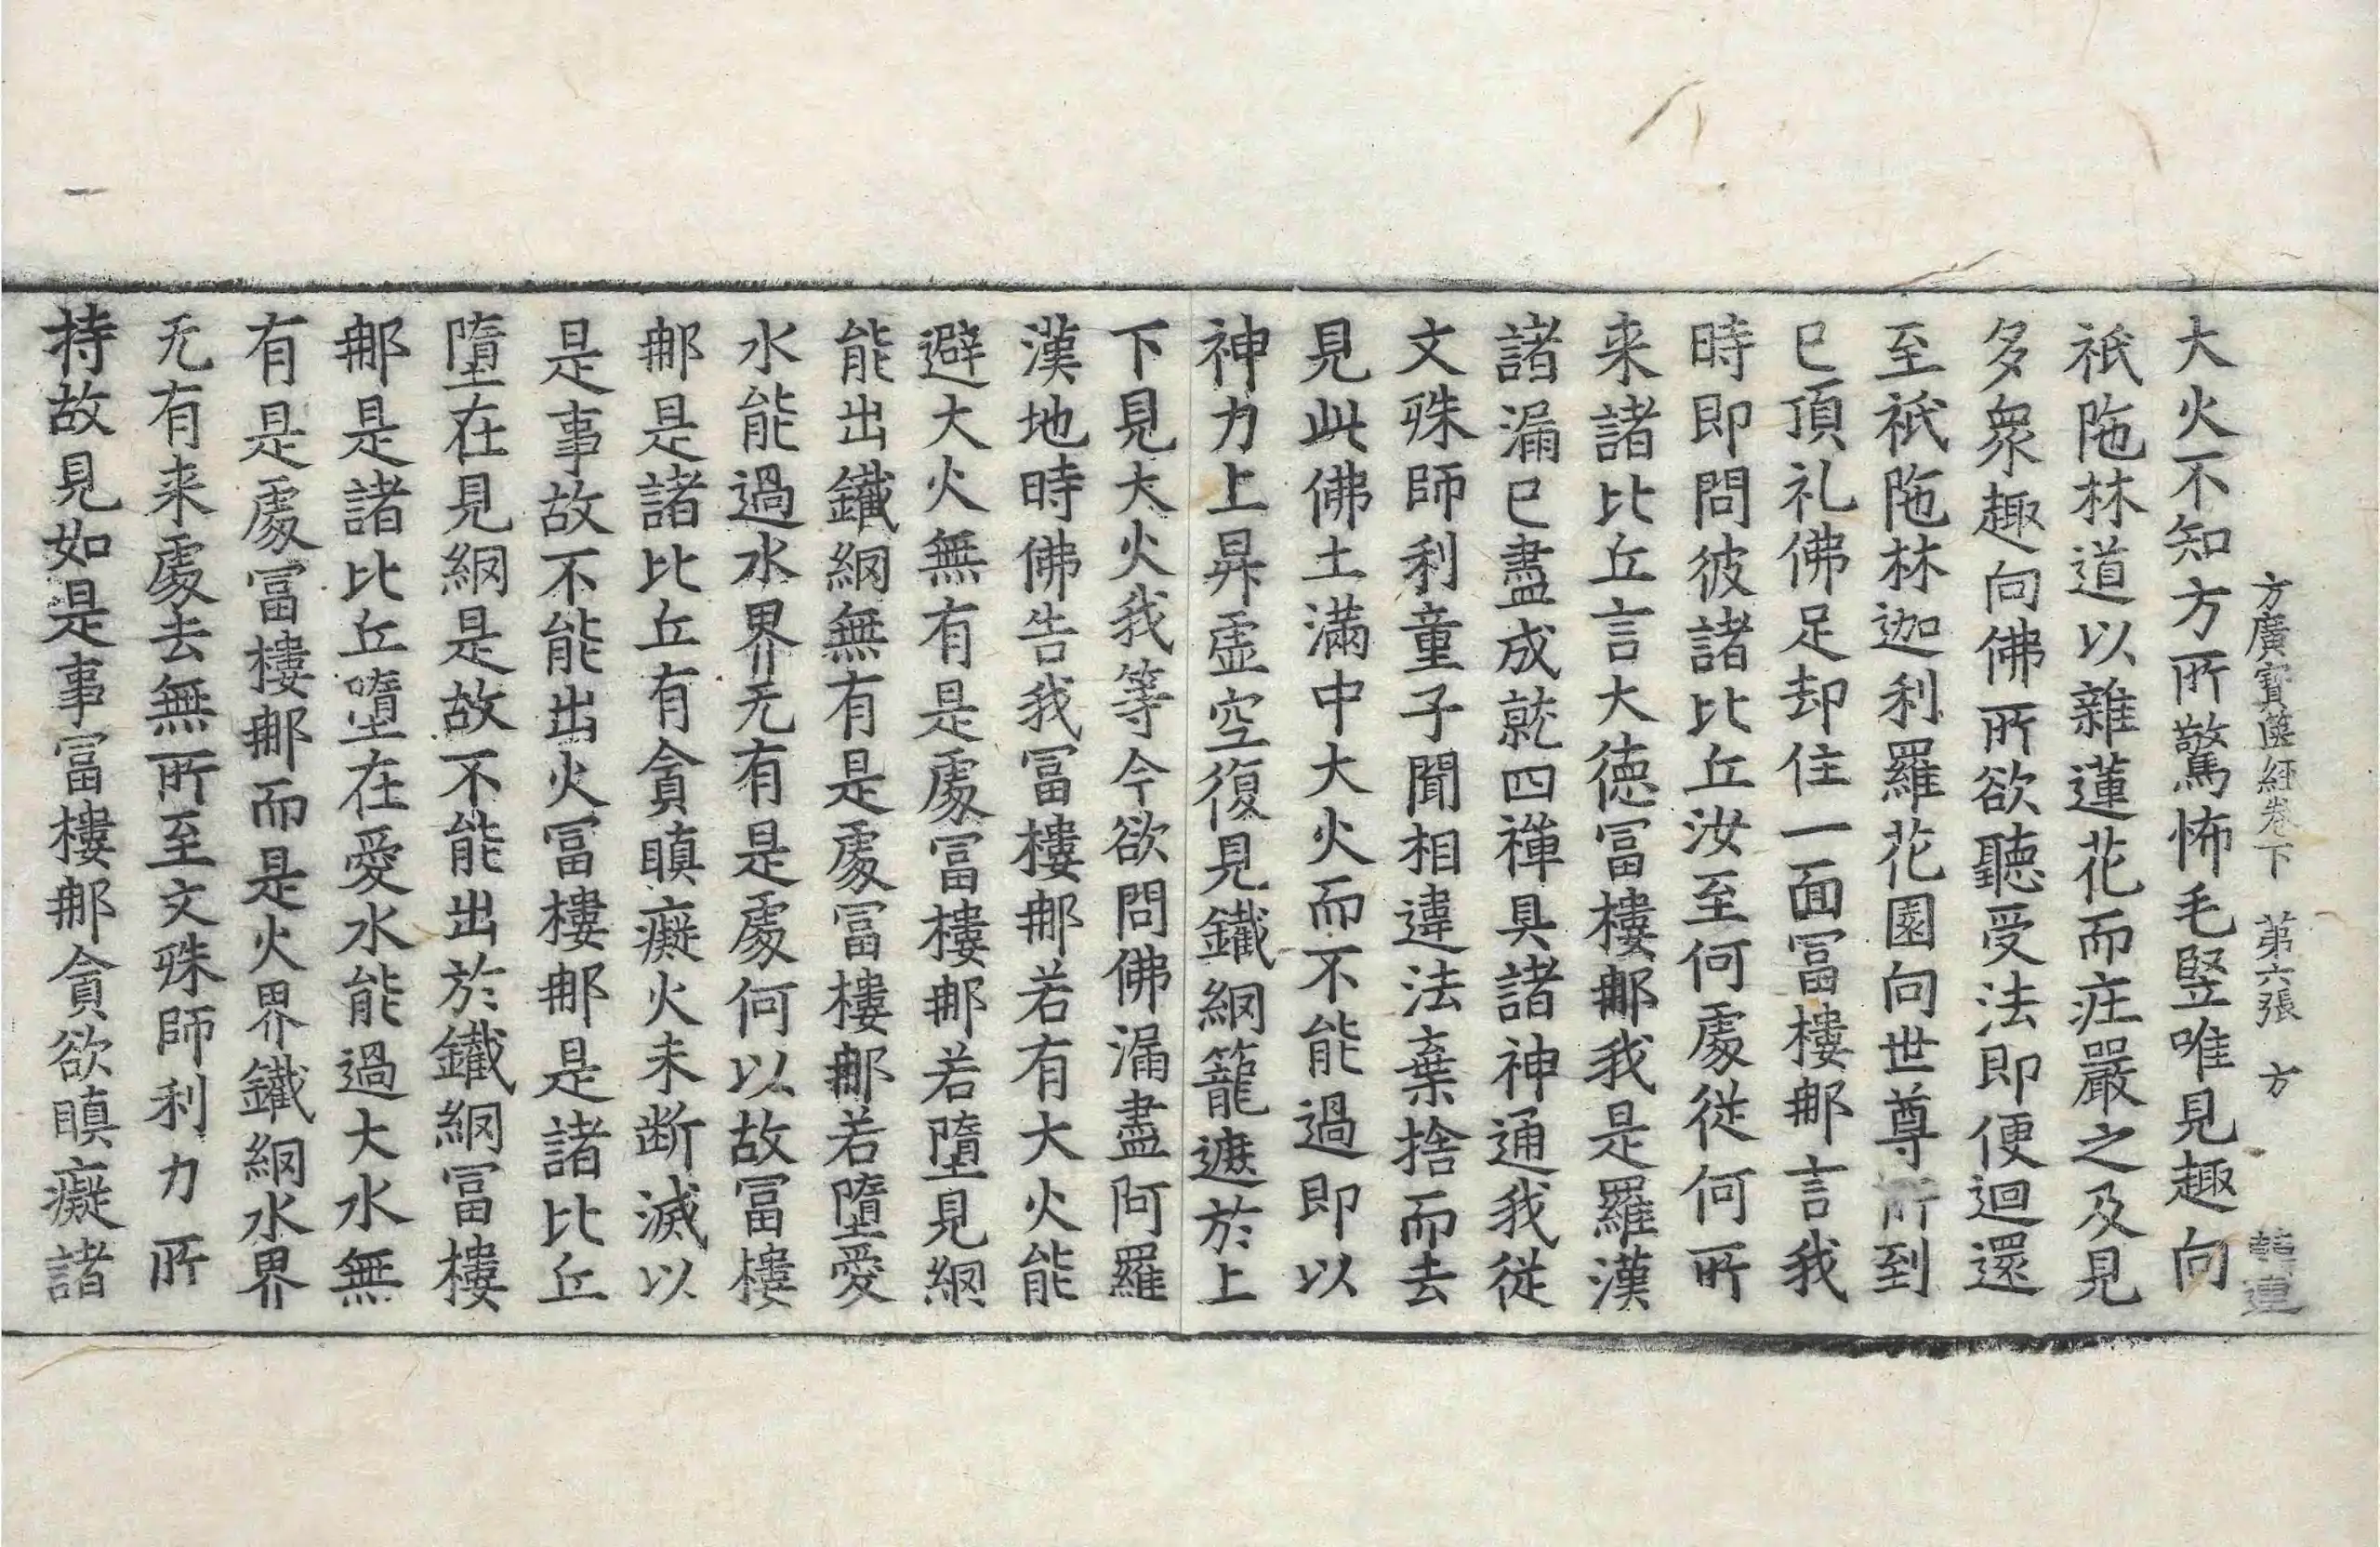 方廣寶篋經卷下 第六張 方
大火不知方所驚怖毛竪唯見趣向
祇陁林道以雜蓮花而疘嚴之及見
多衆趣向佛所欲聽受法即便迴還
至祇陁林迦利羅花園向世尊所到
已頂礼佛足却住一面冨樓𨚗言我
時即問彼諸比丘汝至何處従何所
来諸比丘言大徳冨樓𨚗我是羅漢
諸漏已盡成就四禅具諸神通我従
文殊師利童子聞相違法棄捨而去
見此佛土滿中大火而不能過即以
神力上昇虛空復見鐵網籠遮於上
下見大火我等今欲問佛漏盡阿羅
漢地時佛告我冨樓𨚗若有大火能
避大火無有是處冨樓𨚗若墮見網
能出鐵網無有是處冨樓𨚗若墮愛
水能過水界无有是處何以故冨樓
𨚗是諸比丘有貪瞋癡火未断滅以
是事故不能出火冨樓𨚗是諸比丘
墮在見網是故不能出於鐵網冨樓
𨚗是諸比丘墮在愛水能過大水無
有是處冨樓𨚗而是火界鐵網水界
无有来處去無所至文殊師利力所
持故見如是事冨樓𨚗貪欲瞋癡諸